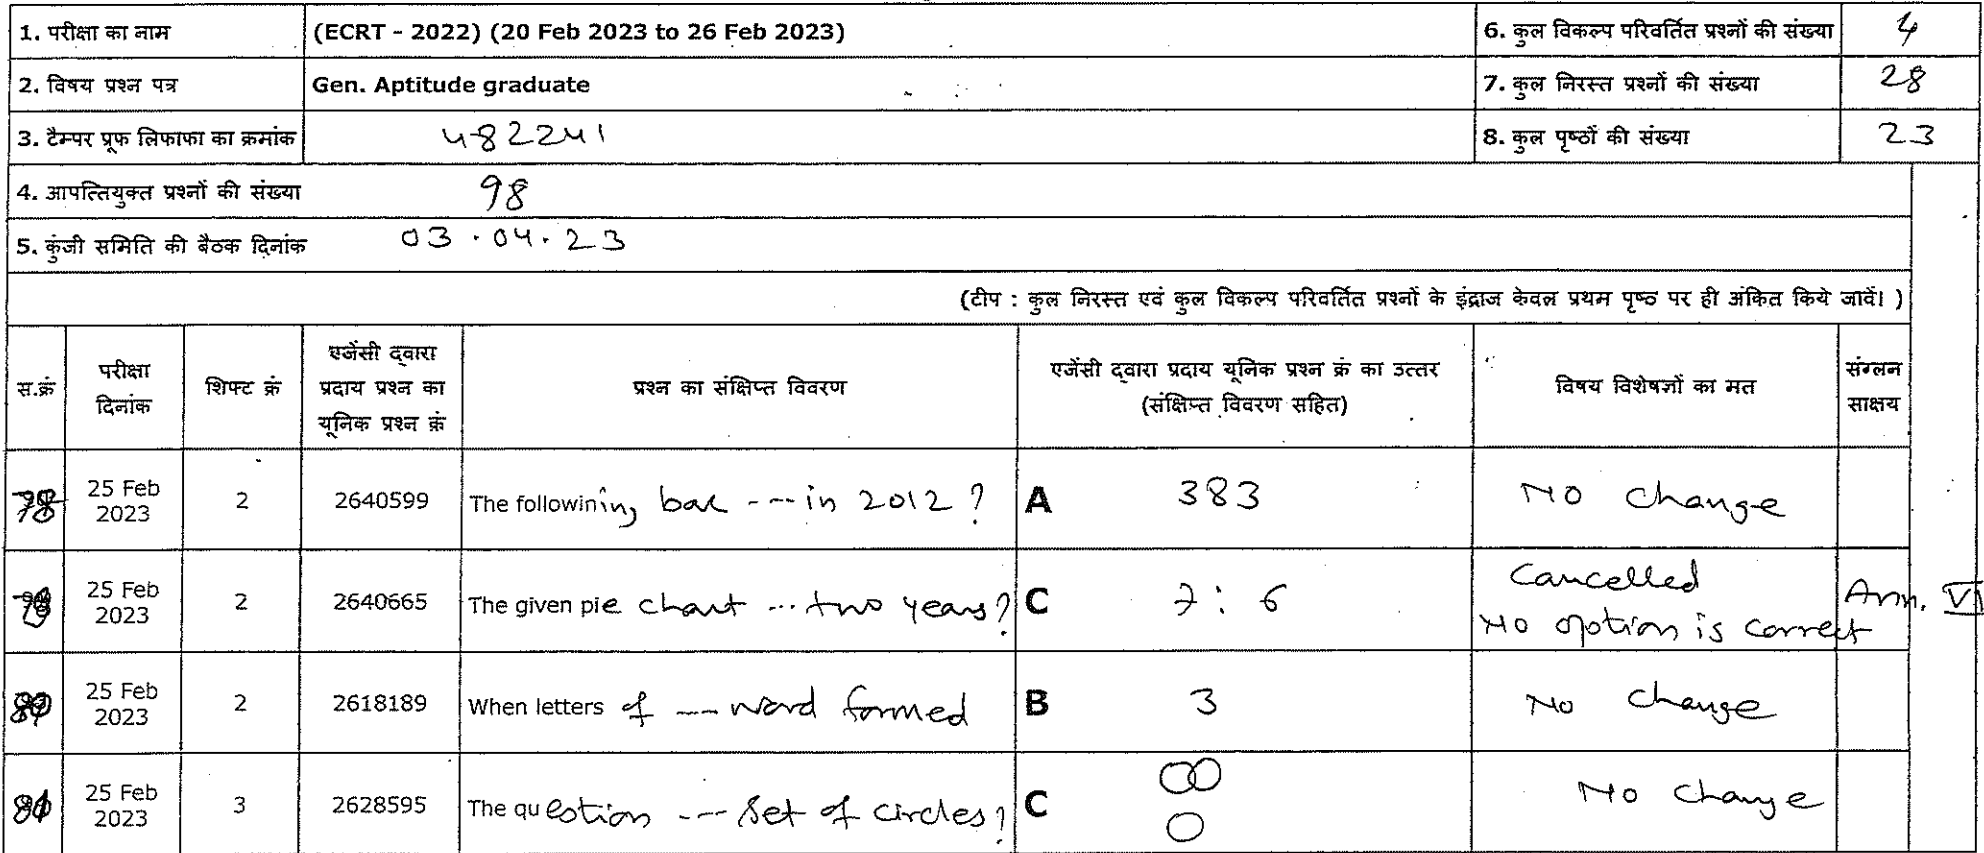 1. परीक्षा का नाम (ECRT - 2022) (20 Feb 2023 to 26 Feb 2023) 6. कुल विकल्प परिवर्तित प्रश्नों की संख्या 4
2. विषय प्रश्न पत्र Gen. Aptitude graduate 7. कुल निरस्त प्रश्नों की संख्या 28
3. टैम्पर प्रूफ लिफाफा का क्रमांक 482241 8. कुल पृष्ठों की संख्या 23
4. आपत्तियुक्त प्रश्नों की संख्या 98
5. कुंजी समिति की बैठक दिनांक 03.04.23
(टीप : कुल निरस्त एवं कुल विकल्प परिवर्तित प्रश्नों के इंद्राज केवल प्रथम पृष्ठ पर ही अंकित किये जावें। )
स.क्रं
परीक्षा
दिनांक
शिफ्ट क्रं
एजेंसी द्वारा
प्रदाय प्रश्न का
यूनिक प्रश्न क्रं
प्रश्न का संक्षिप्त विवरण
एजेंसी द्वारा प्रदाय यूनिक प्रश्न क्रं का उत्तर
(संक्षिप्त विवरण सहित)
विषय विशेषज्ञों का मत
संग्लन
साक्षय
25 Feb
2023
2 2640599 The followining bar --- in 2012 ? A 383 No change
25 Feb
2023
2 2640665 The given pie chart ... two years? C 7 : 6
Cancelled
No option is correct
Ann. VI
25 Feb
2023
2 2618189 When letters of --- word formed B 3 No change
25 Feb
2023
3 2628595 The question --- set of circles? C No change